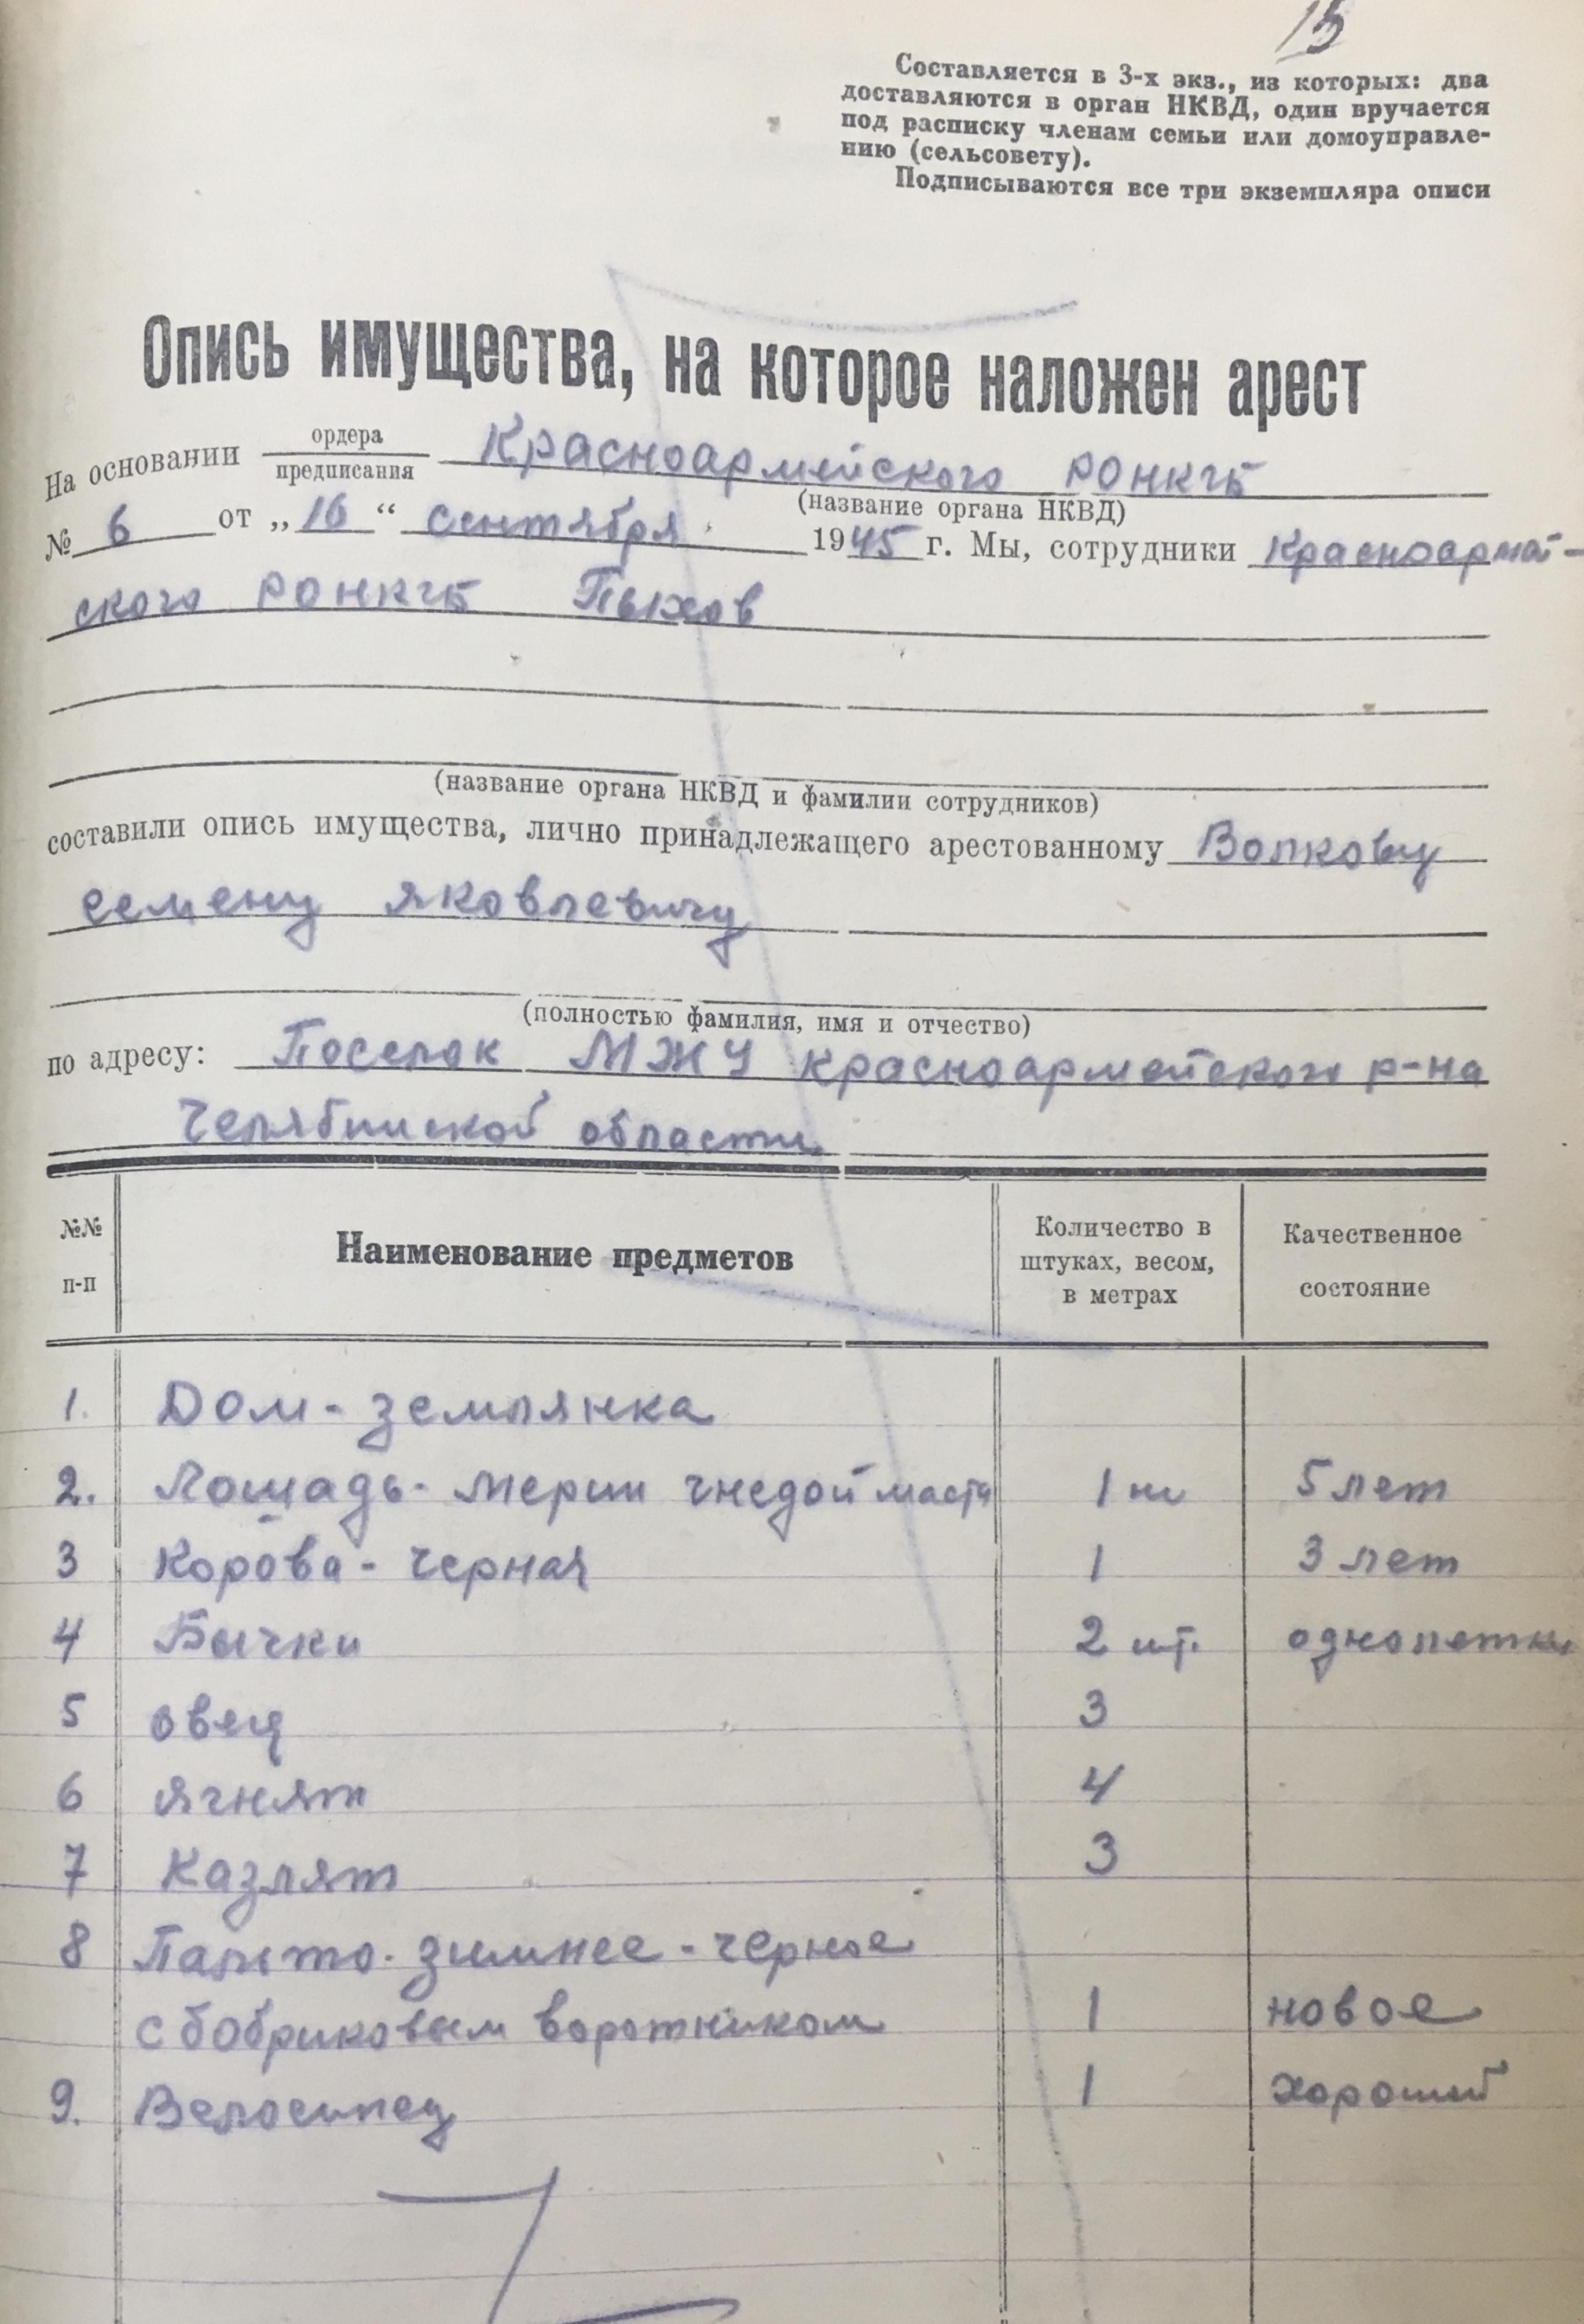 15
Составляется в 3-х экз., из которых: два
доставляются в орган НКВД, один вручается
под расписку членам семьи или домоуправле-
нию (сельсовету).
Подписываются все три экземпляра описи
Опись имущества, на которое наложен арест
На основании ордера Красноармейского РОНКГБ
предписания
(название органа НКВД)
№ 6 от „16“ сентября 1945 г. Мы, сотрудники Красноармей-
ского РОНКГБ Пыхов
(название органа НКВД и фамилии сотрудников)
составили опись имущества, лично принадлежащего арестованному Волкову
Семену Яковлевичу
(полностью фамилия, имя и отчество)
по адресу: Поселок МЖУ Красноармейского р-на
Челябинской области
№№ п-п Наименование предметов Количество в штуках, весом, в метрах Качественное состояние
1. Дом - землянка
2. Лошадь - мерин гнедой масти 1 шт 5 лет
3 Корова - черная 1 3 лет
4 Бычки 2 шт. однолетки
5 овец 3
6 ягнят 4
7 Казлят 3
8 Пальто - зимнее - черное
с бобриковым воротником 1 новое
9. Велосипед 1 хороший